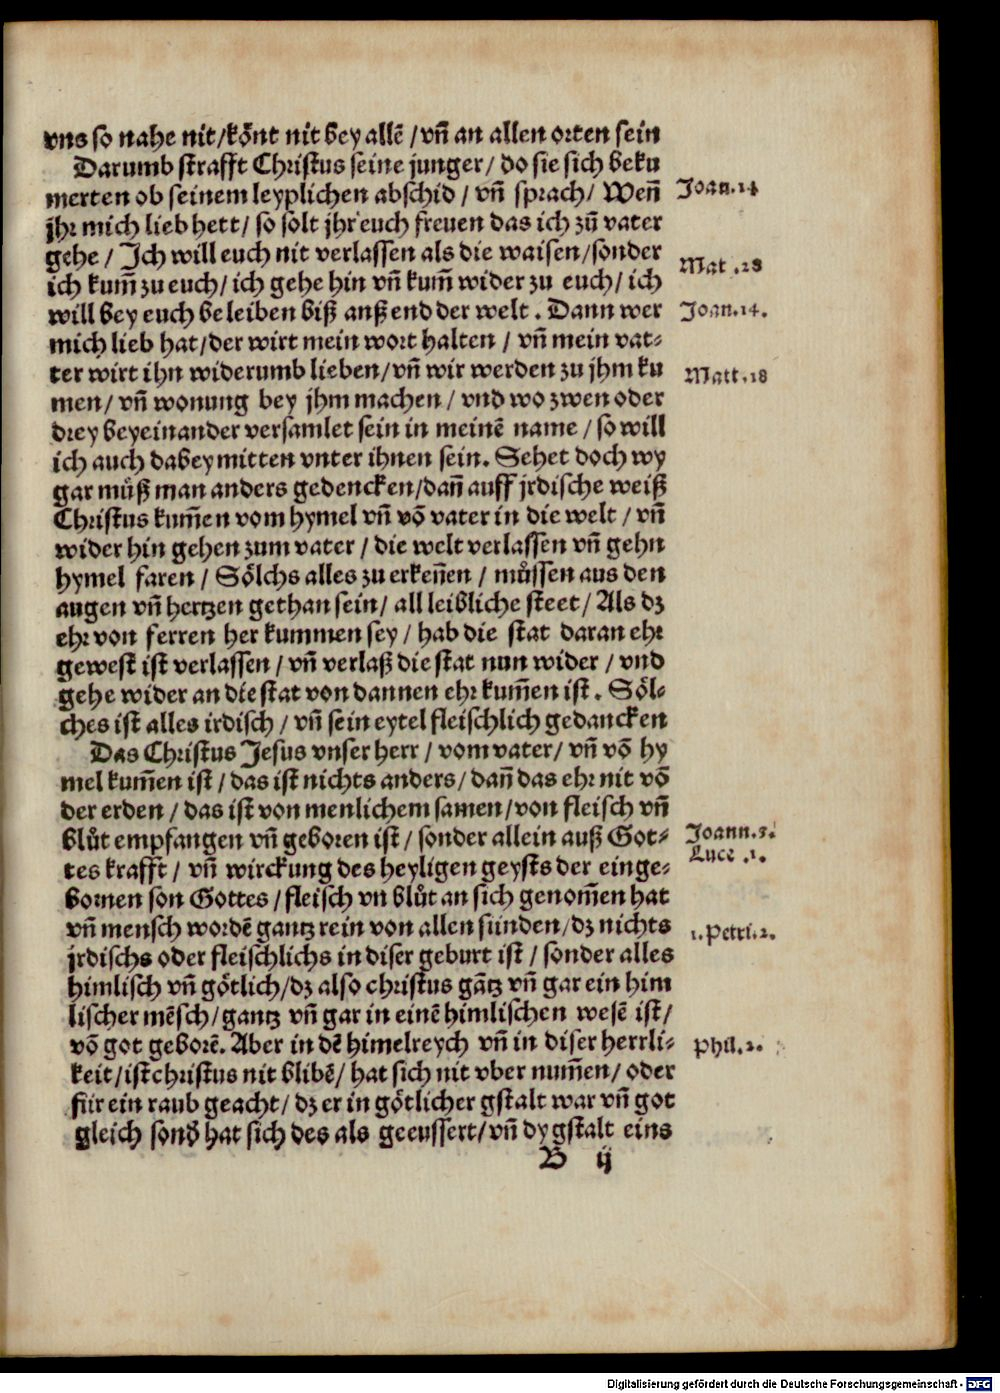 vns so nahe nit/kōnt nit bey allē /vñ an allen orten sein
Darumb strafft Christus seine junger/ do sie sich beku
merten ob seinem leyplichen abschid / vñ sprach/ Weñ
jhr mich lieb hett/ so solt jhr euch freuen das ich zů vater
gehe / Ich will euch nit verlassen als die waisen/sonder
ich kum̄ zu euch/ ich gehe hin vñ kum̄ wider zu euch/ ich
will bey euch beleiben biß anß end der welt . Dann wer
mich lieb hat/der wirt mein wort halten / vñ mein vat⸗
ter wirt ihn widerumb lieben/vñ wir werden zu jhm ku
men/ vñ wonung bey jhm machen / vnd wo zwen oder
drey beyeinander versamlet sein in meinē name / so will
ich auch dabey mitten vnter ihnen sein. Sehet doch wy
gar můß man anders gedencken/dañ auff jrdische weiß
Christus kum̄en vom hymel vñ vō vater in die welt / vñ
wider hin gehen zum vater / die welt verlassen vñ gehn
hymel faren / Sölchs alles zu erkeñen / můssen aus den
augen vñ hertzen gethan sein/ all leibliche steet/ Als dz
ehr von ferren her kummen sey / hab die stat daran ehr
gewest ist verlassen / vñ verlaß die stat nun wider / vnd
gehe wider an die stat von dannen ehr kum̄en ist . Söl⸗
ches ist alles irdisch / vñ sein eytel fleischlich gedancken
Das Christus Jesus vnser herr / vom vater/ vñ vō hy
mel kum̄en ist / das ist nichts anders/ dañ das ehr nit vō
der erden / das ist von menlichem samen/von fleisch vñ
blůt empfangen vñ geboren ist/ sonder allein auß Got⸗
tes krafft / vñ wirckung des heyligen geysts der einge⸗
bornen son Gottes / fleisch vn blůt an sich genom̄en hat
vñ mensch wordē gantz rein von allen sünden/dz nichts
jrdischs oder fleischlichs in diser geburt ist / sonder alles
himlisch vñ götlich/dz also christus gātz vñ gar ein him
lischer mēsch/gantz vñ gar in einē himlischen wesē ist/
vō got geborē. Aber in dē himelreych vñ in diser herrli⸗
keit/ist christus nit blibē/ hat sich nit vber num̄en/ oder
für ein raub geacht/ dz er in götlicher gstalt war vñ got
gleich sonď hat sich des als geeussert/vñ dy gstalt eins
B ij
Joan.14
Mat .28
Joan.14.
Matt.18
Joann.3.
Luce .1.
1.Petri.2.
Phil.2.
Digitalisierung gefördert durch die Deutsche Forschungsgemeinschaft - DFG